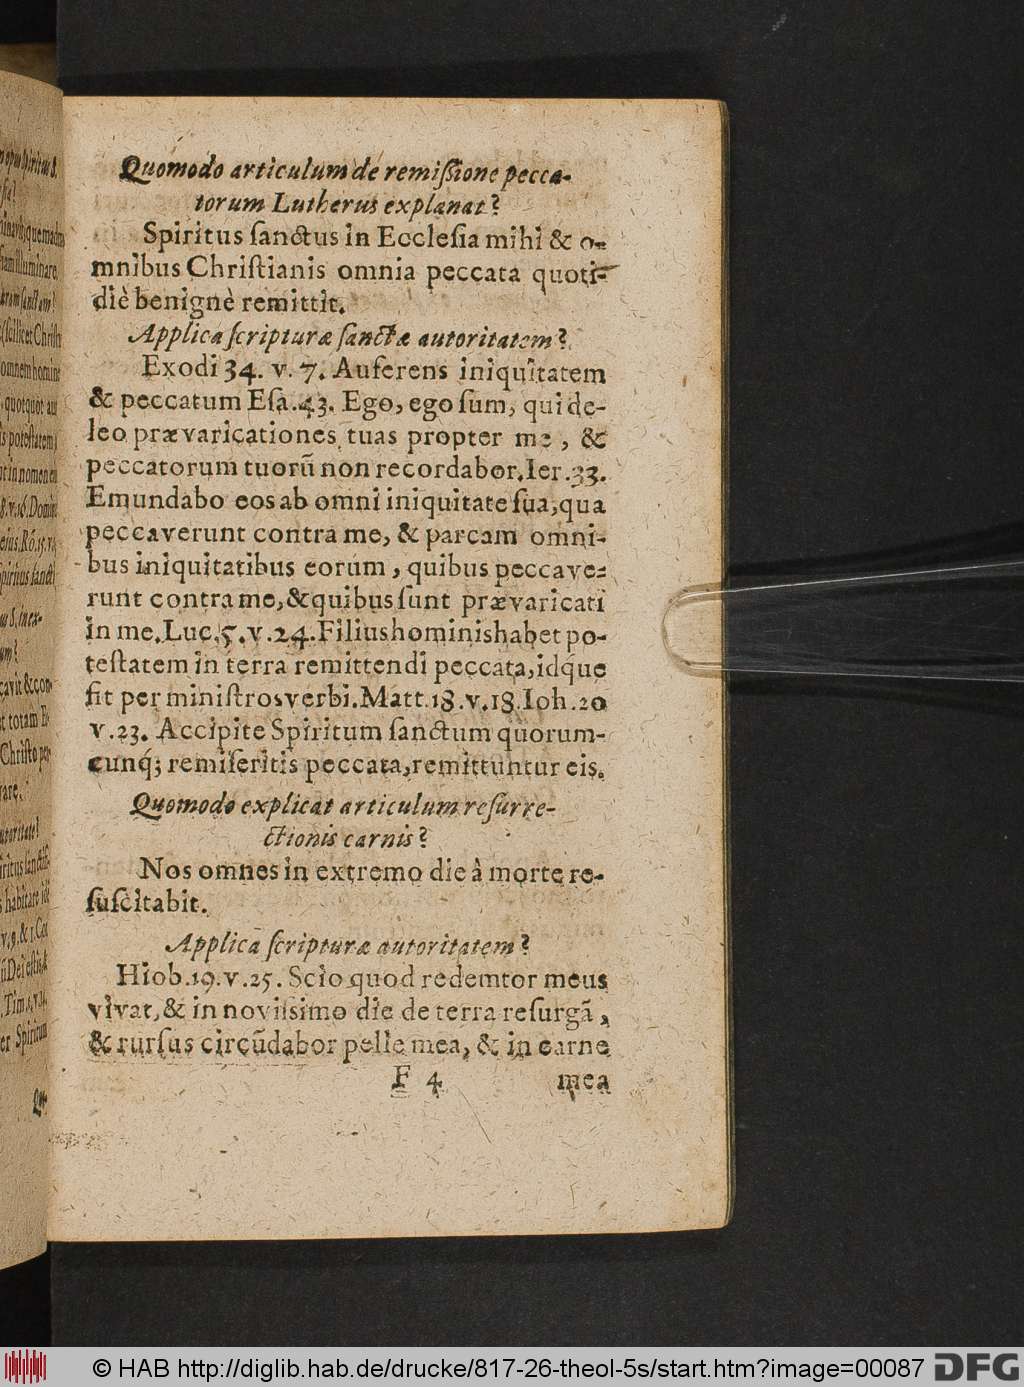 Quomodo articulum de remiſsione pecca-
torum Lutherus explanat?
Spiritus ſanctus in Eccleſia mihi & o-
mnibus Chriſtianis omnia peccata quoti-
diè benignè remittit.
Applica ſcripturæ ſanctæ autoritatem?
Exodi 34. v. 7. Auferens iniquitatem
& peccatum Eſa. 43. Ego, ego ſum, qui de-
leo prævaricationes tuas propter me, &
peccatorum tuorũ non recordabor. Ier. 33.
Emundabo eos ab omni iniquitate ſua, qua
peccaverunt contra me, & parcam omni-
bus iniquitatibus eorum, quibus peccave-
runt contra me, & quibus ſunt prævaricati
in me. Luc. 5. v. 24. Filius hominis habet po-
teſtatem in terra remittendi peccata, idq́ue
fit per miniſtros verbi. Matt. 18. v. 18. Ioh. 20
v. 23. Accipite Spiritum ſanctum quorum-
cunq́; remiſeritis peccata, remittuntur eis.
Quomodo explicat articulum reſurre-
ctionis carnis?
Nos omnes in extremo die à morte re-
ſuſcitabit.
Applica ſcripturæ autoritatem?
Hiob. 19. v. 25. Scio quod redemtor meus
vivat, & in noviſsimo die de terra reſurgã,
& rurſus circũdabor pelle mea, & in carne
F 4 mea
© HAB http://diglib.hab.de/drucke/817-26-theol-5s/start.htm?image=00087
DFG